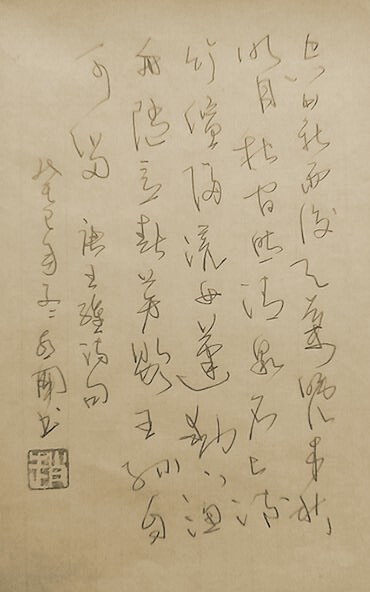 空山新雨後天氣晚來秋
明月松間照清泉石上流
竹喧歸浣女蓮動下漁
舟隨意春芳歇王孫自
可留 唐王維詩句
癸巳年 書